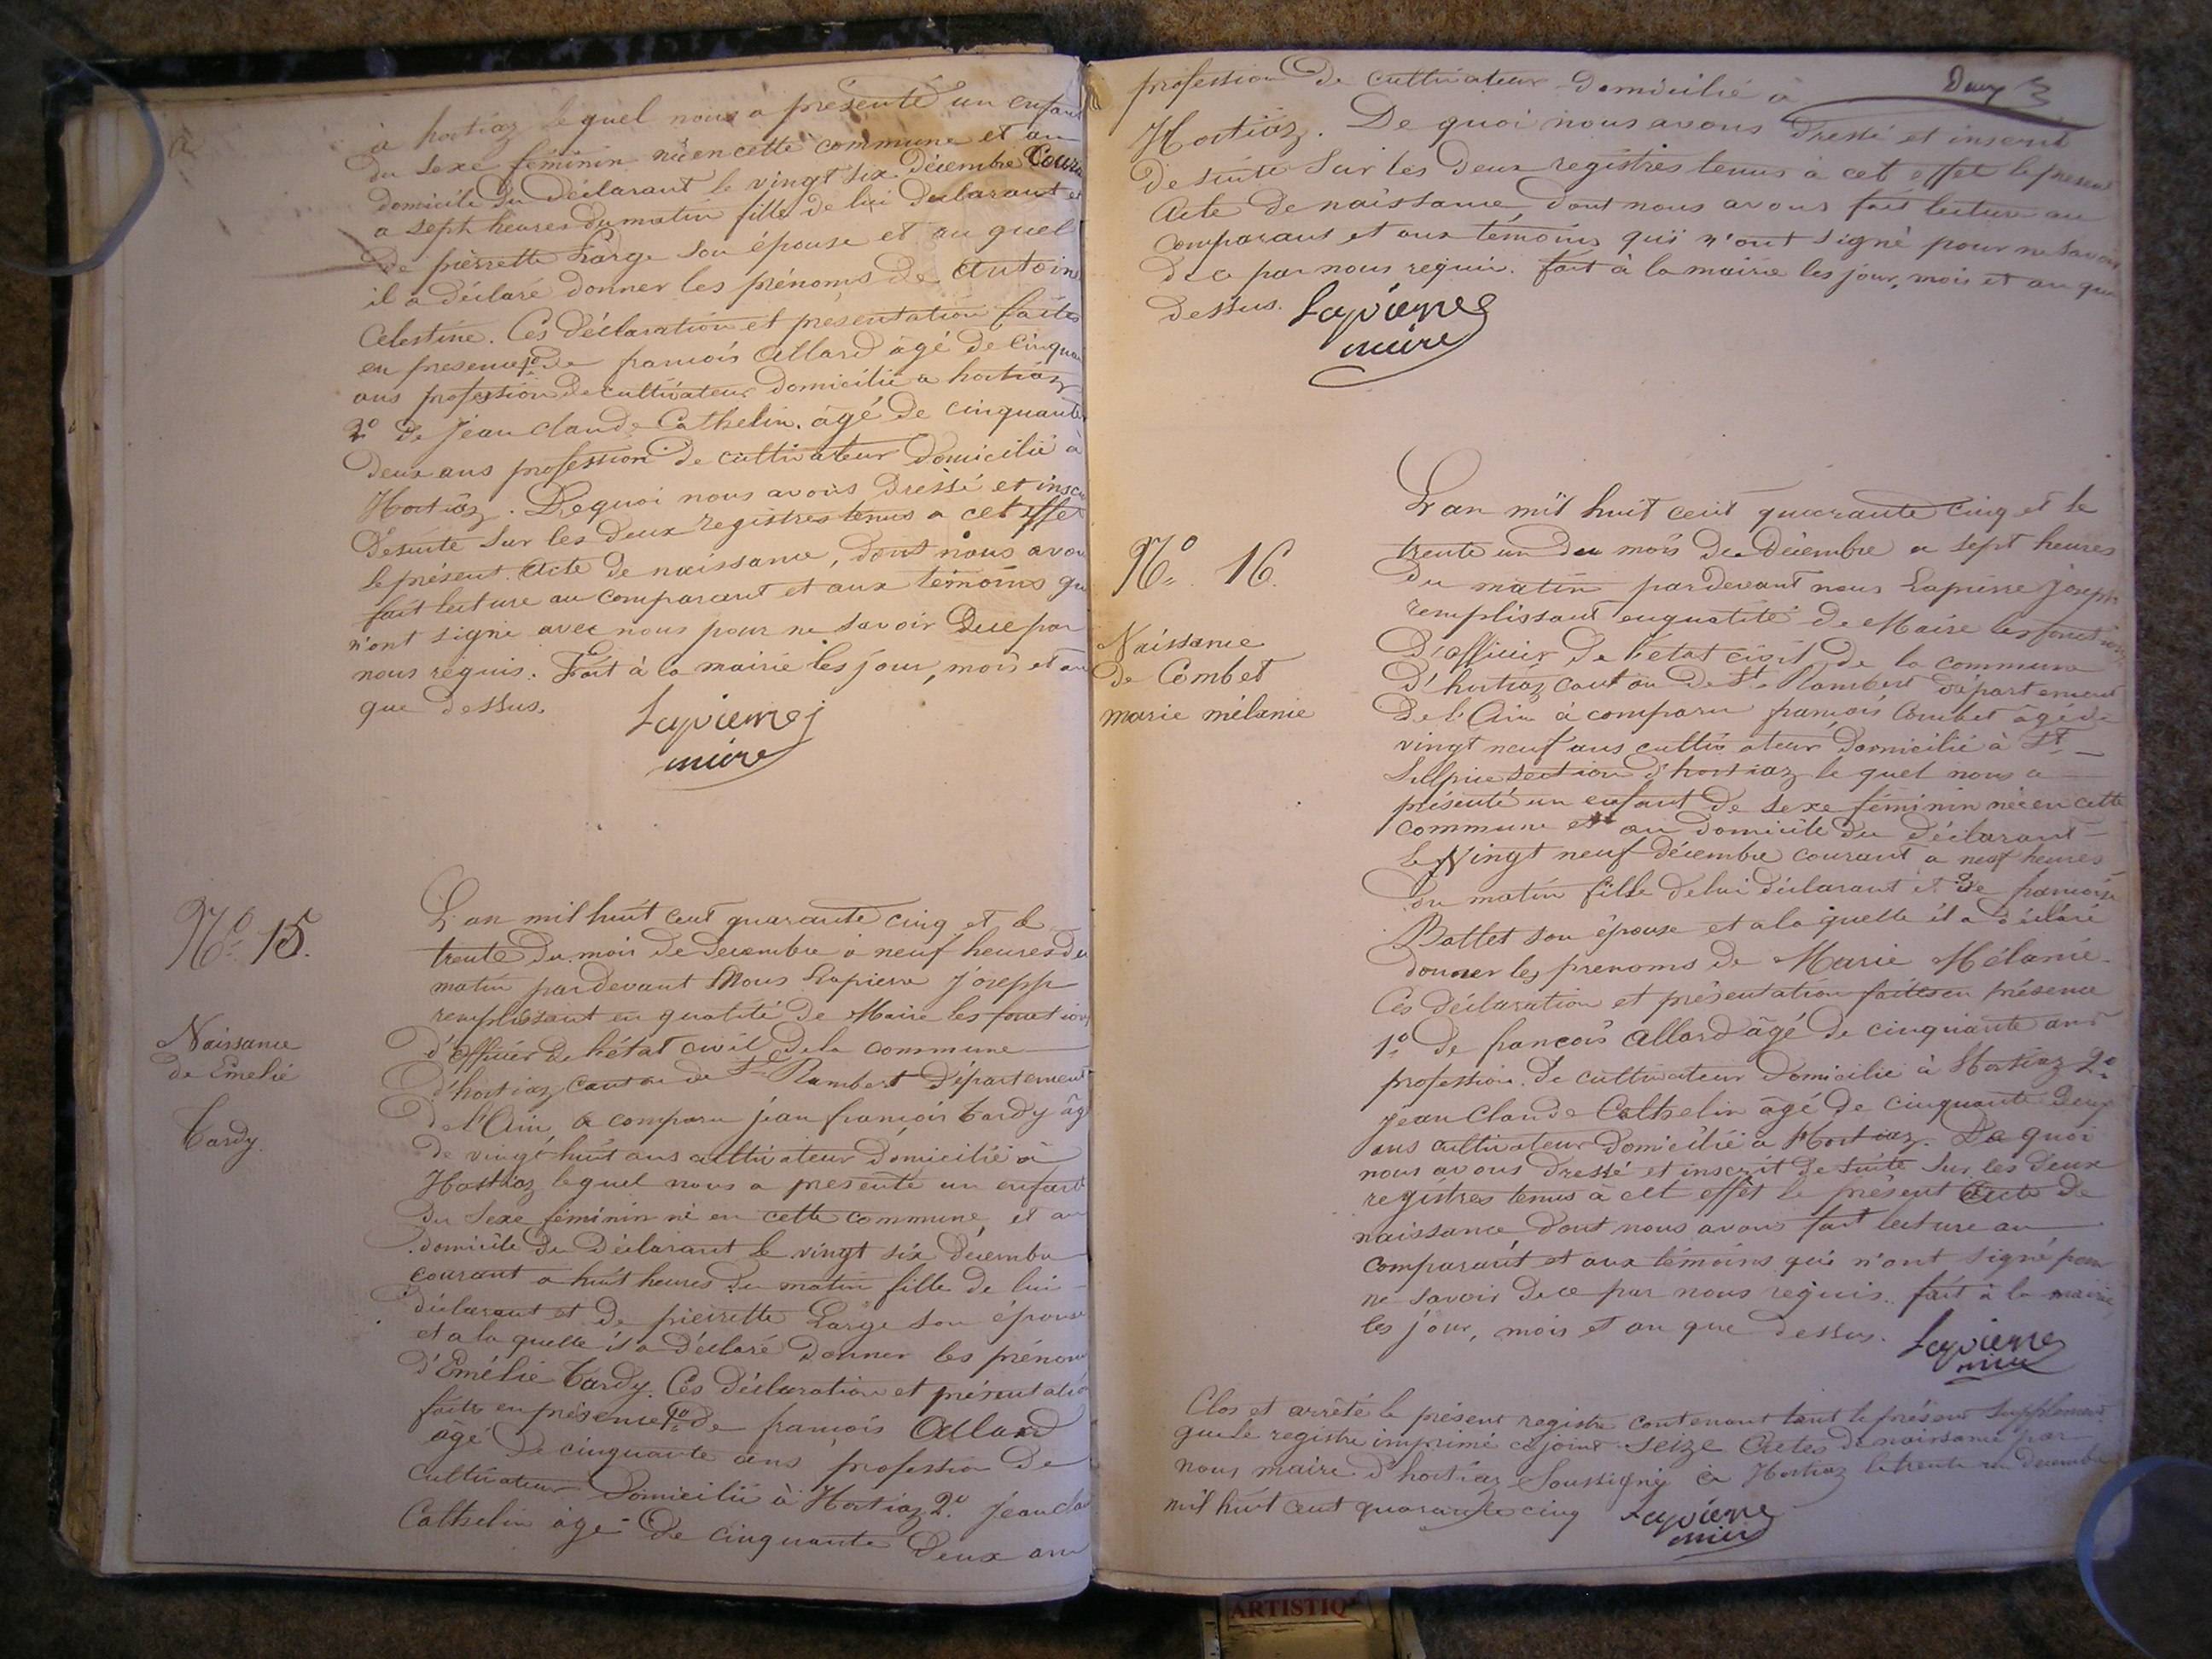 à hortiaz lequel nous a présenté un enfant
du sexe féminin née en cette commune et au
domicile du déclarant le vingt six décembre Coura
a sept heures du matin fille de lui declarant et
de pierrette Large son épouse et au quel
il a déclaré donner les prénoms de Antoine
Celestine. Ces déclaration et présentation faites
en presence 1º de francois Allard âgé de cinquan
ans profession de cultivateur domicilié a hortiaz
2º de jean claude Cathelin. âgé de cinquante
deux ans profession de cultivateur domicilié à
Hortiaz. De quoi nous avons dressé et inscri
desuite sur les deux registres tenus a cet effet
le présent acte de naissance, dont nous avon
fait lecture au comparant et aux témoins qu
n'ont signé avec nous pour ne savoir de ce par
nous requis. Fait à la mairie les jour, mois et an
que dessus. Lapierre j
maire
Nº 15.
Naissance
de Emelie
Tardy.
L'an mil huit cent quarante cinq et le
trente du mois de decembre à neuf heures du
matin pardevant Nous Lapierre joseph
remplissant en qualité de Maire les fonctions
d'officier de l'état civil de la commune
d'hortiaz canton de St Rambert Département
de l'Ain, a comparu jean françois Tardy âgé
de vingt huit ans cultivateur domicilié à
Hostiaz lequel nous a presenté un enfant
du sexe féminin né en cette commune, et au
domicile du Déclarant le vingt six décembre
courant a huit heures du matin fille de lui
déclarant et de pierrette Large son épouse
et a la quelle il a déclaré donner les prénom
d'Emélie Tardy. Ces déclaration et présentatio
faite en présence 1º de francois Allard
âgé de cinquante ans profession de
cultivateur domicilié à Hortiaz 2º. jean cla
Cathelin âgé de cinquante deux ans
profession de cultivateur domicilié à
Hortiaz. De quoi nous avons dressé et inscrit
de suite sur les deux registres tenus à cet effet le present
acte de naissance, dont nous avons fait lecture au
comparant et aux témoins qui n'ont signé pour ne savoir
de ce par nous requis. fait à la mairie les jour, mois et an que
dessus. Lapierre
maire
Nº. 16.
Naissance
de Combet
marie mélanie
L'an mil huit cent quarante cinq et le
trente un du mois de Décembre a sept heures
du matin pardevant nous Lapierre joseph
remplissant en qualité de Maire les fonctions
d'officier de l'état civil de la commune
d'hortiaz canton de St. Rambert département
de l'Ain à comparu françois Combet âgé de
vingt neuf ans cultivateur domicilié à St
Sulpice section d'hortiaz le quel nous a
présenté un enfant de sexe féminin née en cette
commune et au domicile du déclarant
le Vingt neuf décembre courant a neuf heures
du matin fille de lui déclarant et de francoise
Ballet son épouse et a la quelle il a déclaré
donner les prenoms de Marie Mélanie.
Ces déclaration et présentation faites en présence
1º. de francois Allard âgé de cinquante ans
profession de cultivateur domicilié à Hortiaz 2º
jean Claude Cathelin âgé de cinquante deux
ans cultivateur domicilié à Hortiaz. De quoi
nous avons dressé et inscrit de suite sur les deux
registres tenus a cet effet le présent Acte de
naissance dont nous avons fait lecture au
comparant et aux témoins qui n'ont signé pour
ne savoir de ce par nous requis. fait à la mairie
les jour, mois et an que dessus. Lapierre
maire
Clos et arrêté le présent registre contenant tant le présent Supplément
que le registre imprimé cijoint Seize Actes de naissance par
nous maire d'hortiaz Soussigné à Hortiaz le trente un decembre
mil huit cent quarante cinq Lapierre
maire
ARTISTIQ